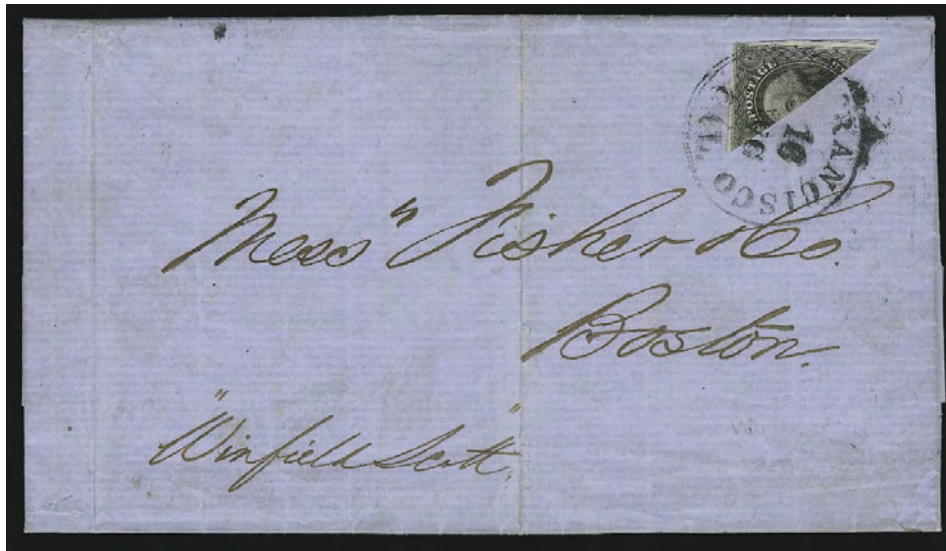 POSTAGE
FRANCISCO
16
Mess" Fisher & Co.
Boston.
"Winfield Scott",